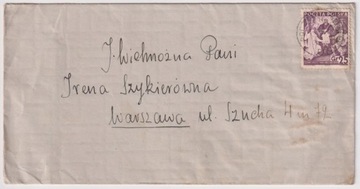 POCZTA POLSKA
25
J. Wielmożna Pani
Irena Szykierówna
Warszawa ul. Szucha 4 m 72